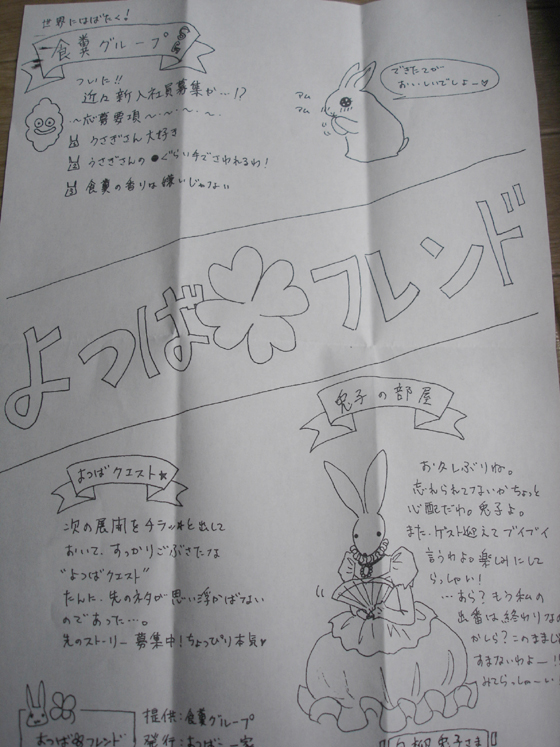 世界にはばたく!
食糞グループ
ついに!!
近々新入社員募集が…!?
~応募要項~・~・~・~
うさぎさん大好き
うさぎさんの●ぐらい手でさわれるわ!
食糞の香りは嫌いじゃない
アム
アム
できたてが
おいしいでしょー♥
よつばフレンド
よつばクエスト☆
次の展開をチラッ★と出して
おいて、すっかりごぶさたな
"よつばクエスト"
たんに、先のネタが思い浮かばない
のであった…。
先のストーリー募集中!ちょっぴり本気♥
兎子の部屋
お久しぶりね。
忘れられてないかちょっと
心配だわ。兎子よ。
また、ゲスト迎えてブイブイ
言うわよ。楽しみにして
らっしゃい!
…あら?もう私の
出番は終わりなの
かしら?このままじ
すまないわよー!!
みてらっしゃーい
よつばフレンド
提供:食糞グループ
発行:よつばっ一家
兎子さま